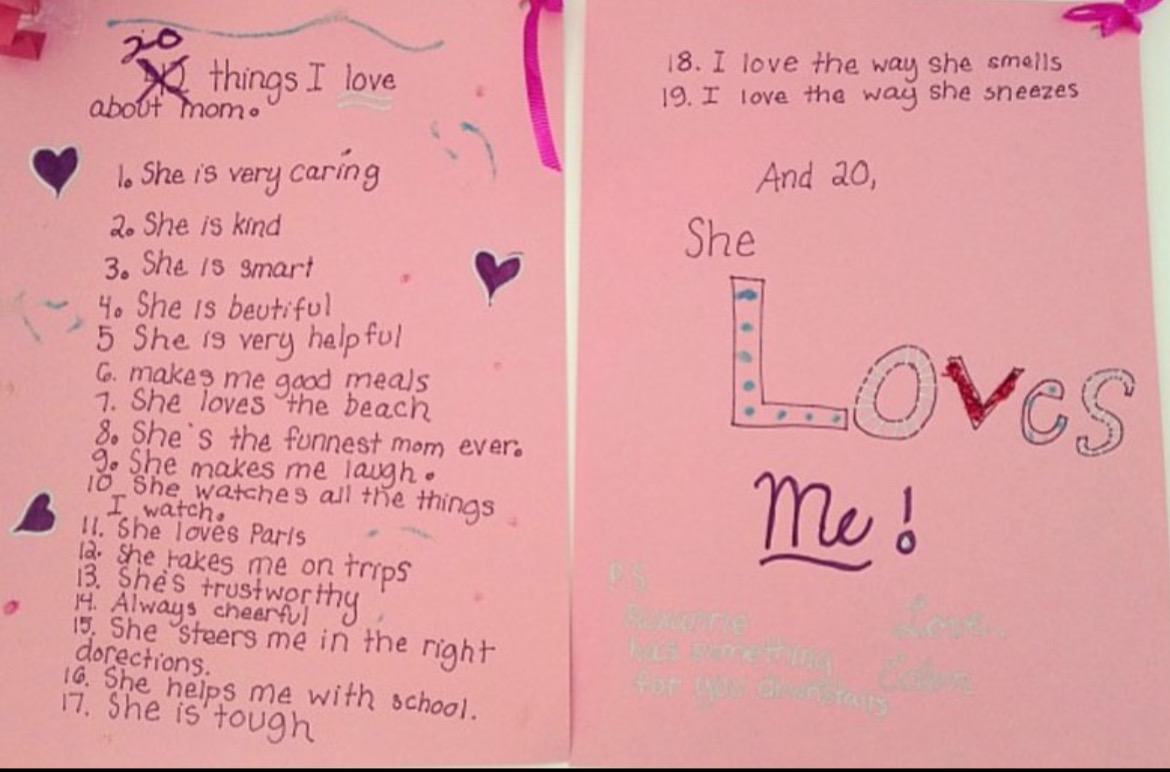 20
things I love
about mom.
1. She is very caring
2. She is kind
3. She is smart
4. She is beutiful
5 She is very helpful
6. makes me good meals
7. She loves the beach
8. She's the funnest mom ever.
9. She makes me laugh.
10 She watches all the things
I watch.
11. She loves Paris
12. She takes me on trips
13. She's trustworthy
14. Always cheerful
15. She steers me in the right
dorections.
16. She helps me with school.
17. She is tough
18. I love the way she smells
19. I love the way she sneezes
And 20,
She
Loves
Me!
P.S
has something
for you downstairs
Love,